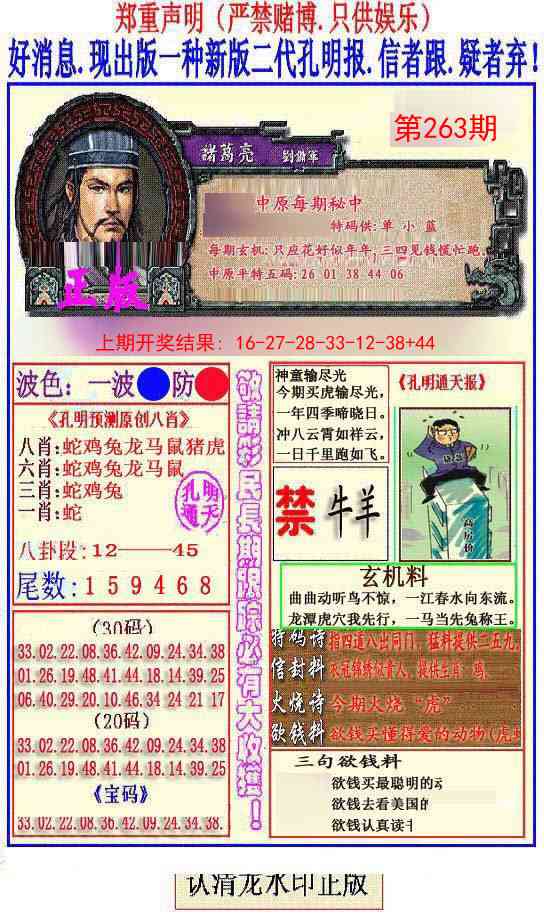 郑重声明（严禁赌博.只供娱乐）
好消息.现出版一种新版二代孔明报.信者跟.疑者弃!
第263期
諸葛亮 劉備軍
中原每期秘中
特码供:单 小 蓝
每期玄机:只应花好似年年,三四见钱慌忙跑.
中原平特五码:26 01 38 44 06
正版
上期开奖结果: 16-27-28-33-12-38+44
波色: 一波 防
《孔明预测原创八肖》
八肖:蛇鸡兔龙马鼠猪虎
六肖:蛇鸡兔龙马鼠
三肖:蛇鸡兔
一肖:蛇
孔明
通天
八卦段:12——45
尾数:159468
(30码)
33.02.22.08.36.42.09.24.34.38
01.26.19.48.41.44.18.14.39.25
06.40.29.20.10.46.34 24 21 17
(20码)
33.02.22.08.36.42.09.24.34.38
01.26.19.48.41.44.18.14.39.25
《宝码》
33.02.22.08.36.42.09.24.34.38.
敬請彩民長期跟踪必有大收獲!
神童输尽光
今期买虎输尽光,
一年四季啼晓日。
冲八云霄如祥云,
一日千里跑如飞。
《孔明通天报》
高房价
禁 牛羊
玄机料
曲曲动听鸟不惊，一江春水向东流。
龙潭虎穴我先行，一马当先兔称王。
特码诗 指四道八出同门，猛料提供二五九.
信封料 衣冠锦绣似贵人，提供生肖：鸡.
火烧诗 今期火烧“虎”
欲钱料 欲钱买懂得爱的动物(虎
三句欲钱料
欲钱买最聪明的
欲钱去看美国的
欲钱认真读
认清龙水印正版